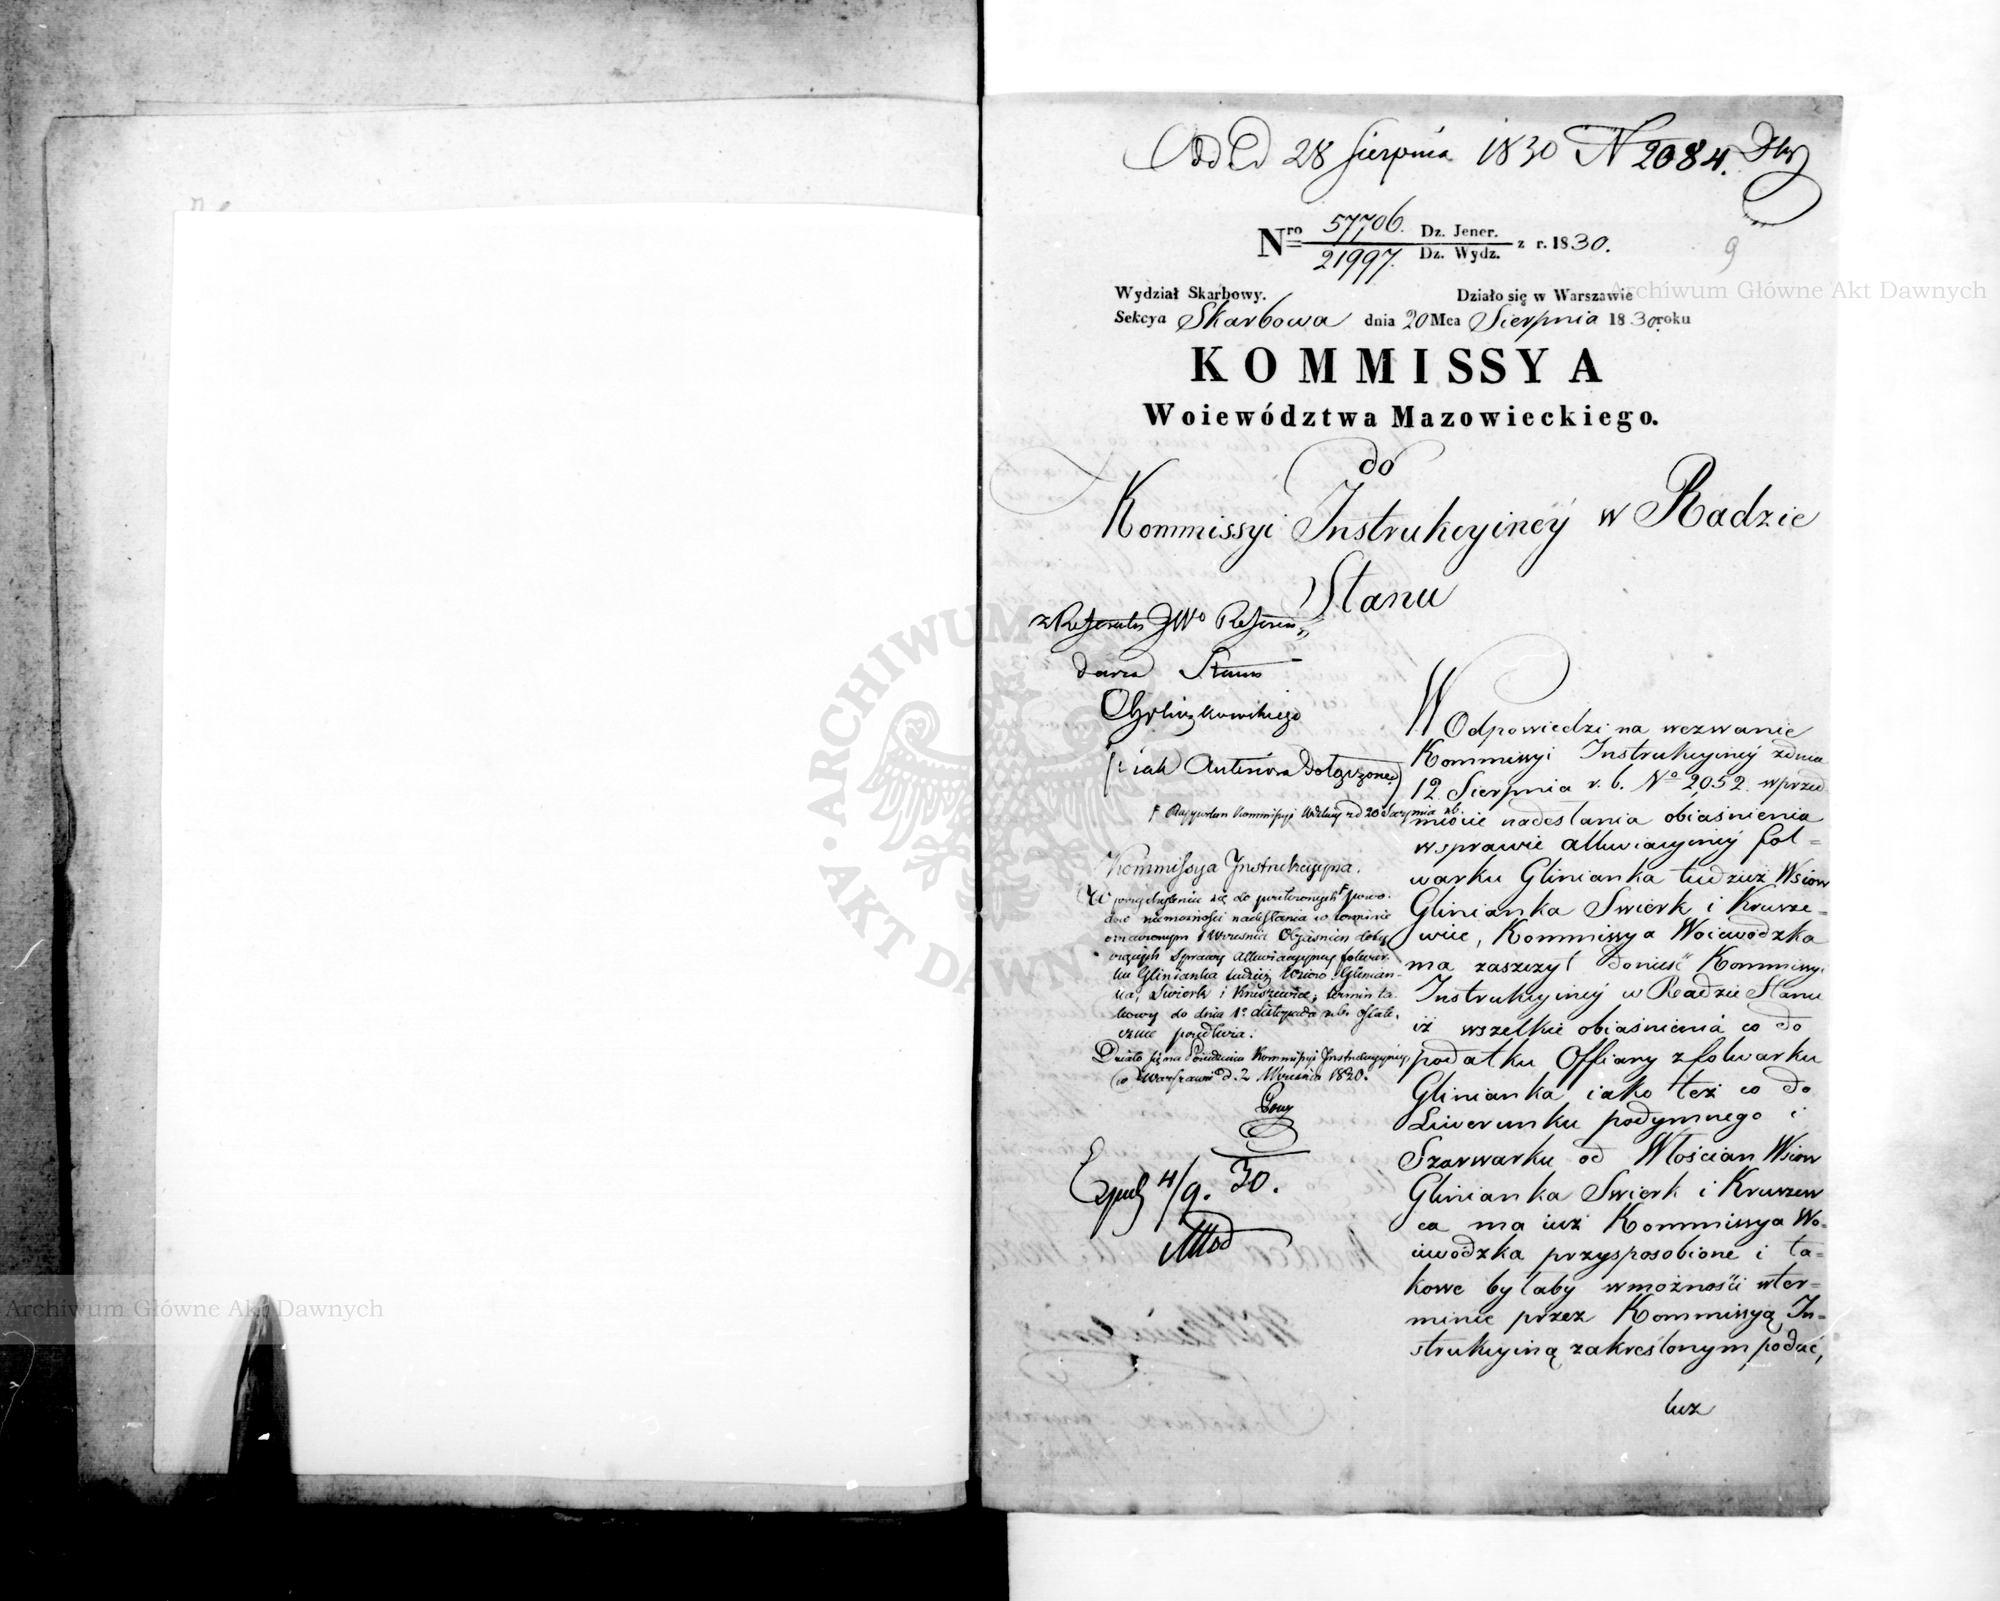 Odd d 28 Sierpnia 1830 N 2084.
Nro 57706. Dz. Jener.
21997. Dz. Wydz. z r. 1830.
9
Wydział Skarbowy. Działo się w Warszawie
Sekcya Skarbowa dnia 20 Mca Sierpnia 1830 roku
KOMMISSYA
Woiewództwa Mazowieckiego.
do
Kommissyi Instrukcyiney w Radzie
Stanu
z Referatu JWo Referen
darza Stanu
(: iak Anteriora dołączone)
Kommissya Instrukcyyna.
W przychyleniu się do powo-
dów niemożności nadesłania w terminie
oznaczonym 1 Września Objaśnień doty
czących Sprawy Alluviacyyney folwar-
ku Glinianka tudzież Wsiów Glinian-
ka, Świerk i Kruszewiec, termin ta-
kowy do dnia 1o Listopada rb. ostate-
cznie przedłuża.
Działo się na Posiedzeniu Kommissyi Instrukcyyney
w Warszawie d. 2 Września 1830.
Exped 4/9. 30.
W Odpowiedzi na wezwanie
Kommissyi Instrukcyiney z dnia
12 Sierpnia r. b. No 2052. w przed
miocie nadesłania obiaśnienia
w sprawie alluviacyiney fol=
warku Glinianka tudzież Wsiów
Glinianka Swierk i Krusze=
wiec, Kommissya Woiewodzka
ma zaszczyt donieść Kommissyi
Instrukcyiney w Radzie Stanu
iż wszelkie obiaśnienia co do
podatku Offiary z folwarku
Glinianka iako też co do
Liwerunku podymnego i
Szarwarku od Włościan Wsiów
Glinianka Swierk i Kruszew
ca ma iuż Kommissya Wo=
iewodzka przysposobione i ta=
kowe byłaby w możności w ter=
minie przez Kommissyą In=
strukcyiną zakreślonym podać,
lecz
Archiwum Główne Akt Dawnych
Archiwum Główne Akt Dawnych
ARCHIWUM GŁÓWNE AKT DAWNYCH